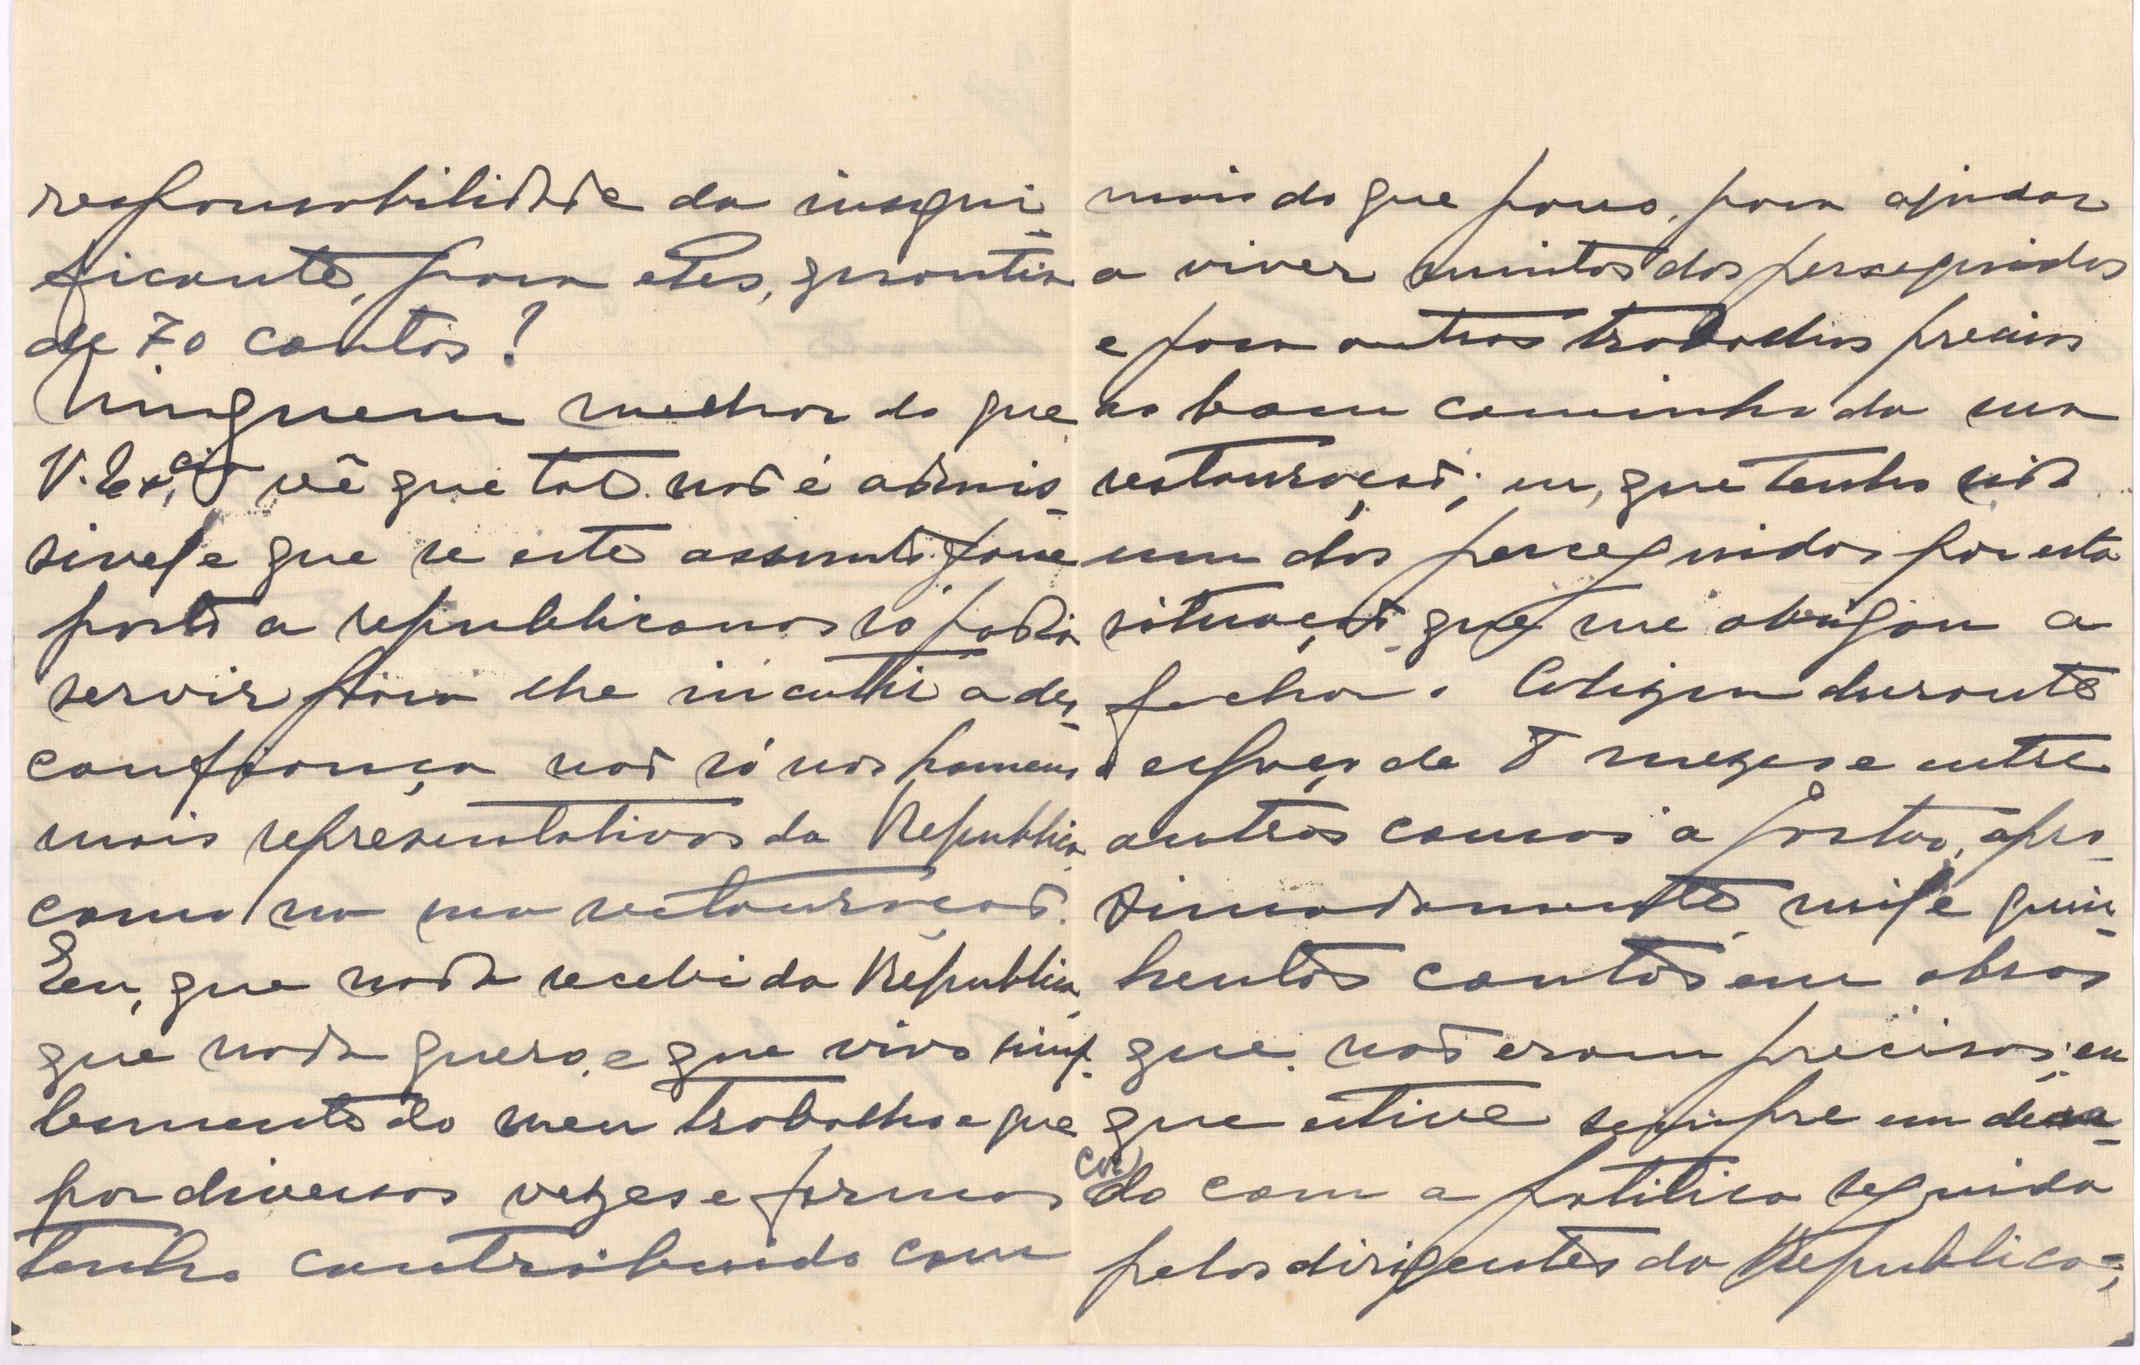 responsabilidade da insigni-
ficante, para eles, garantia
de 70 contos?
Ninguem melhor do que
V. Ex.cia vê que tal não é admis-
sivel e que se este assunto fosse
posto a republicanos só podia
servir para lhe incutir a des-
confiança não só nos homens
mais representativos da Republica
como na sua restauração.
Eu, que nada recebi da Republica,
que nada quero, e que vivo simp-
lesmente do meu trabalho e que
por diversas vezes e formas
tenho contribuido com
mais do que posso, para ajudar
a viver muitos dos perseguidos
e para outros trabalhos precisos
ao bom caminho da sua
restauração; eu, que tenho sido
um dos perseguidos por esta
situação que me obrigou a
fechar o Coliseu durante
o espaço de 8 mezes e entre
outras cousas a gastar, apro-
ximadamente, mil e quin-
hentos contos em obras
que não eram precisas; eu
que estive sempre em desa-
cordo com a politica seguida
pelos dirigentes da Republica;